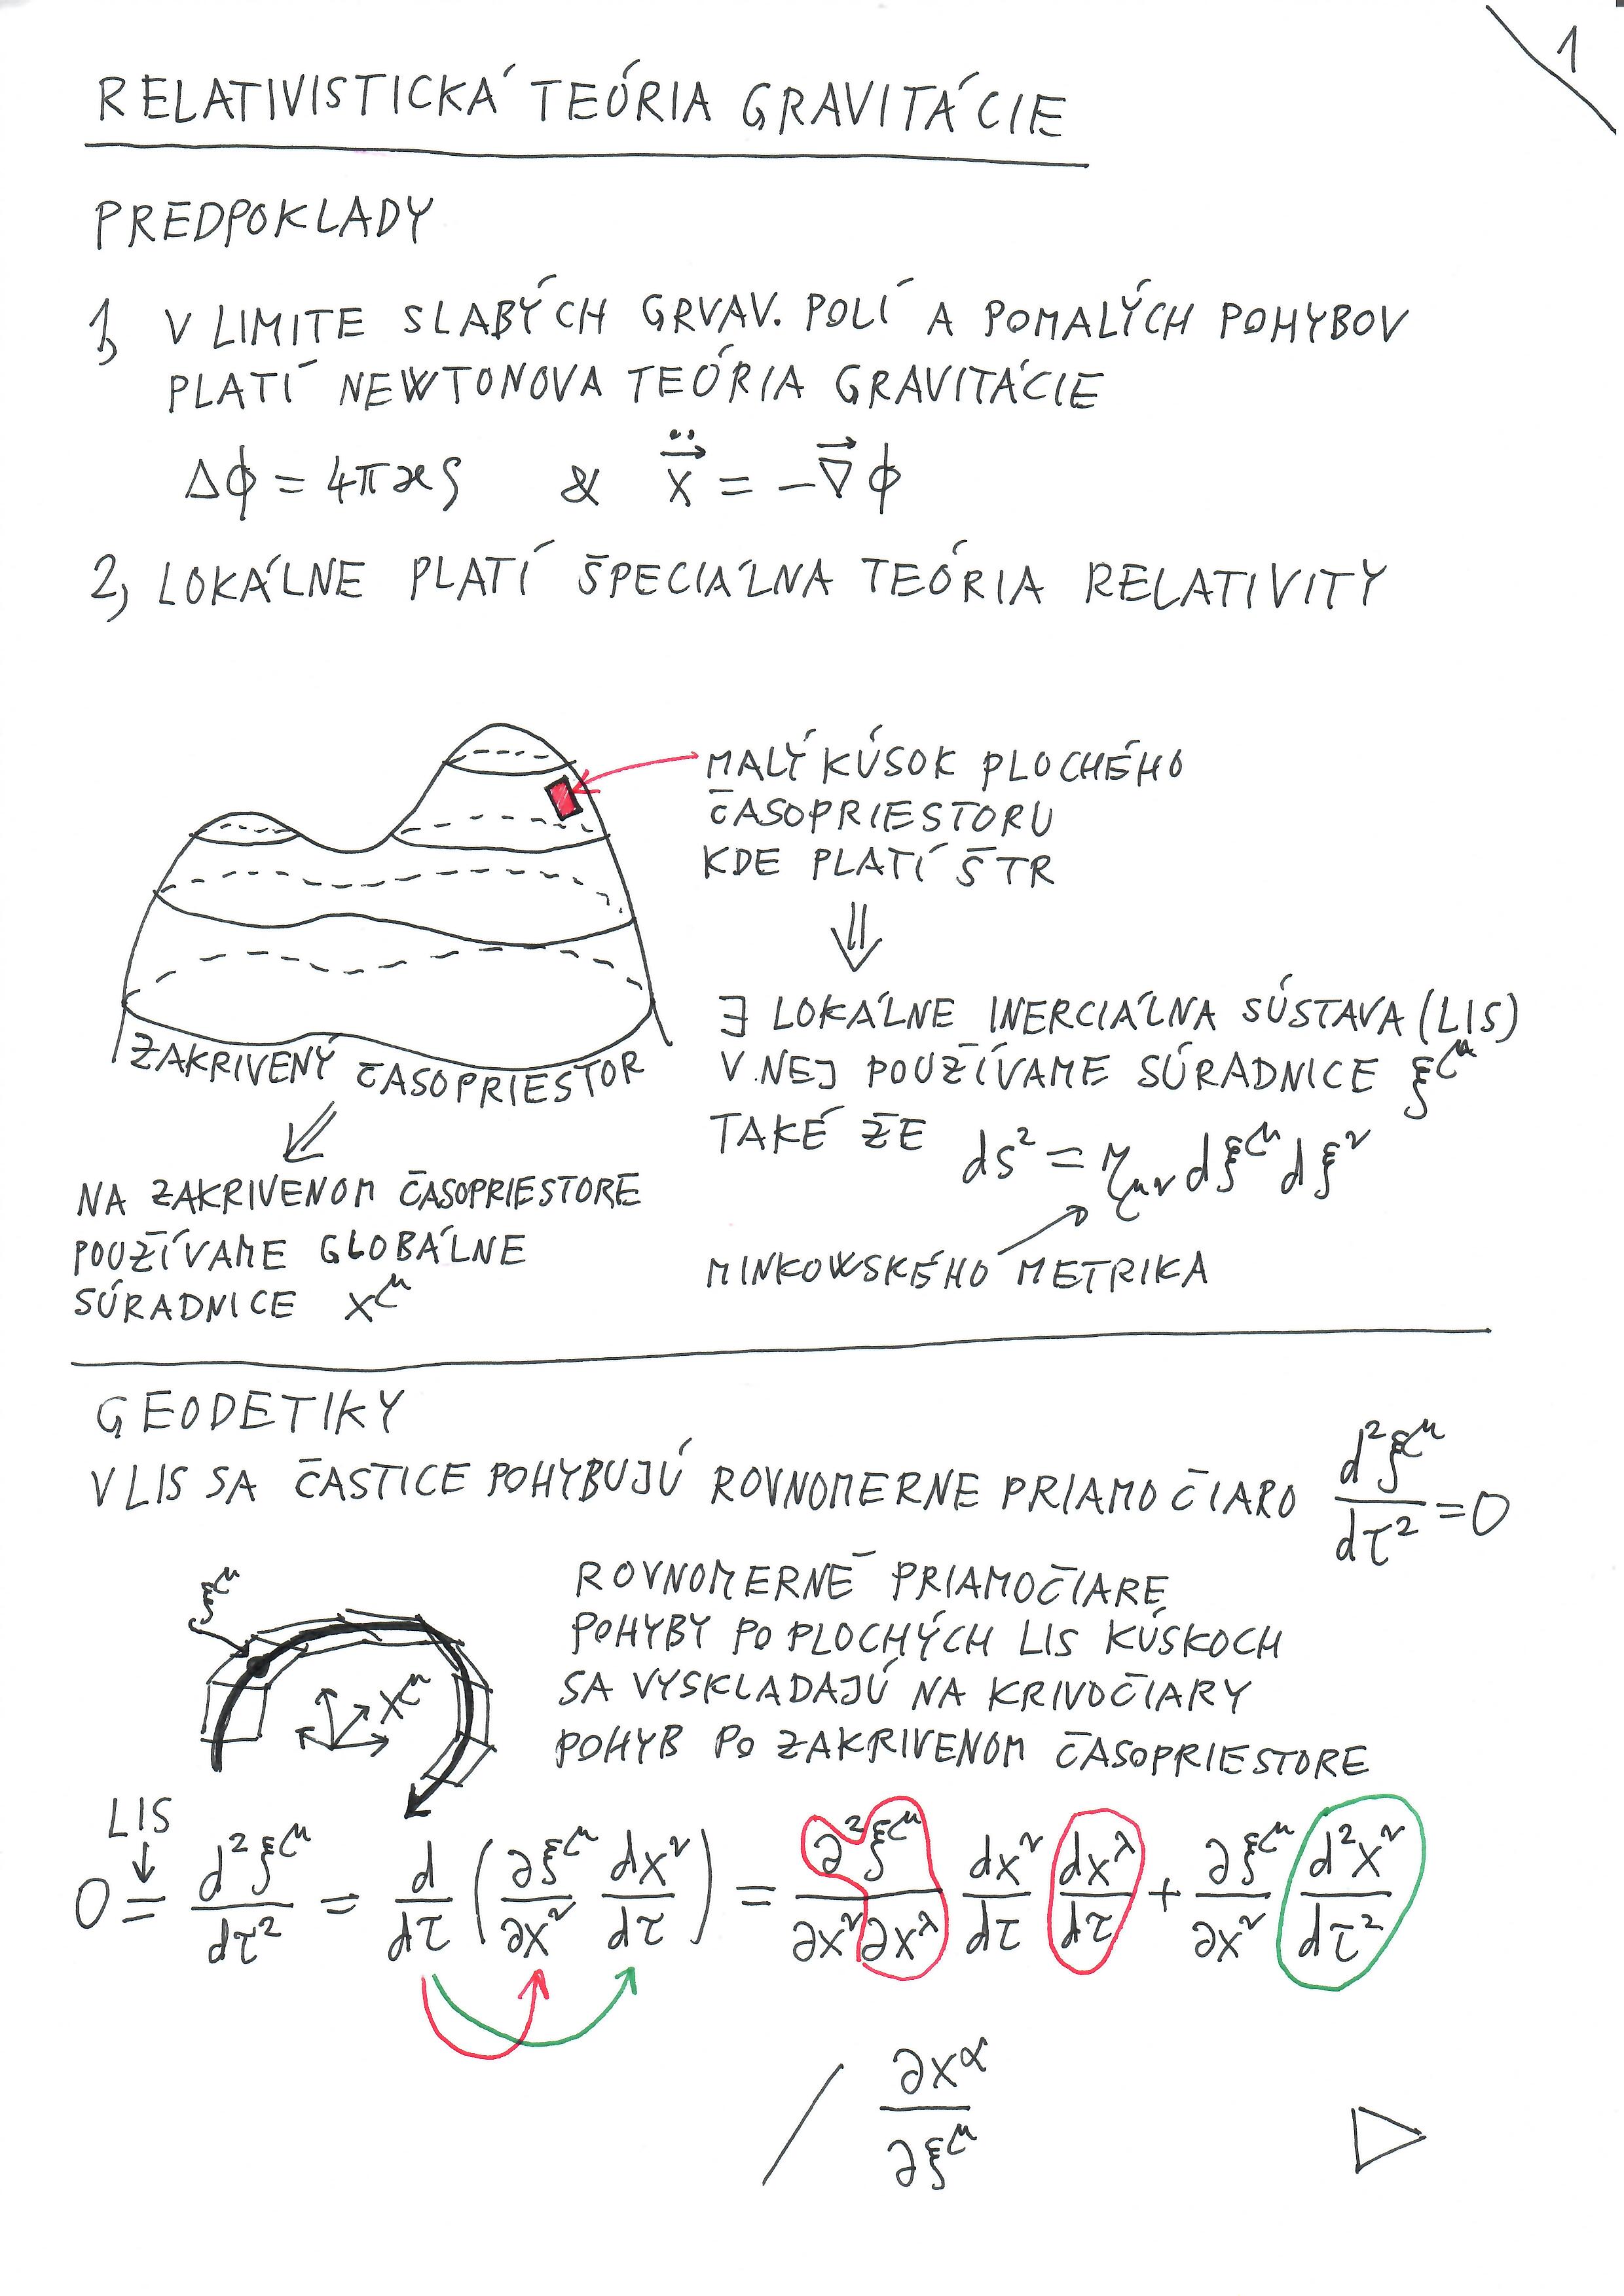 1
RELATIVISTICKÁ TEÓRIA GRAVITÁCIE
PREDPOKLADY
1, V LIMITE SLABÝCH GRVAV. POLÍ A POMALÝCH POHYBOV
PLATÍ NEWTONOVA TEÓRIA GRAVITÁCIE
Δϕ = 4πϰρ & ẍ⃗ = −∇⃗ϕ
2, LOKÁLNE PLATÍ ŠPECIÁLNA TEÓRIA RELATIVITY
MALÝ KÚSOK PLOCHÉHO
ČASOPRIESTORU
KDE PLATÍ ŠTR
⇓
∃ LOKÁLNE INERCIÁLNA SÚSTAVA (LIS)
V NEJ POUŽÍVAME SÚRADNICE ξ^μ
TAKÉ ŽE ds² = η_μν dξ^μ dξ^ν
MINKOWSKÉHO METRIKA
ZAKRIVENÝ ČASOPRIESTOR
⇓
NA ZAKRIVENOM ČASOPRIESTORE
POUŽÍVAME GLOBÁLNE
SÚRADNICE x^μ
GEODETIKY
V LIS SA ČASTICE POHYBUJÚ ROVNOMERNE PRIAMOČIARO d²ξ^μ/dτ² = 0
ξ^μ
x^μ
ROVNOMERNÉ PRIAMOČIARE
POHYBY PO PLOCHÝCH LIS KÚSKOCH
SA VYSKLADAJÚ NA KRIVOČIARY
POHYB PO ZAKRIVENOM ČASOPRIESTORE
LIS
0 = d²ξ^μ/dτ² = d/dτ (∂ξ^μ/∂x^ν dx^ν/dτ) = ∂²ξ^μ/∂x^ν∂x^λ dx^ν/dτ dx^λ/dτ + ∂ξ^μ/∂x^ν d²x^ν/dτ²
/ ∂x^α/∂ξ^μ ▷